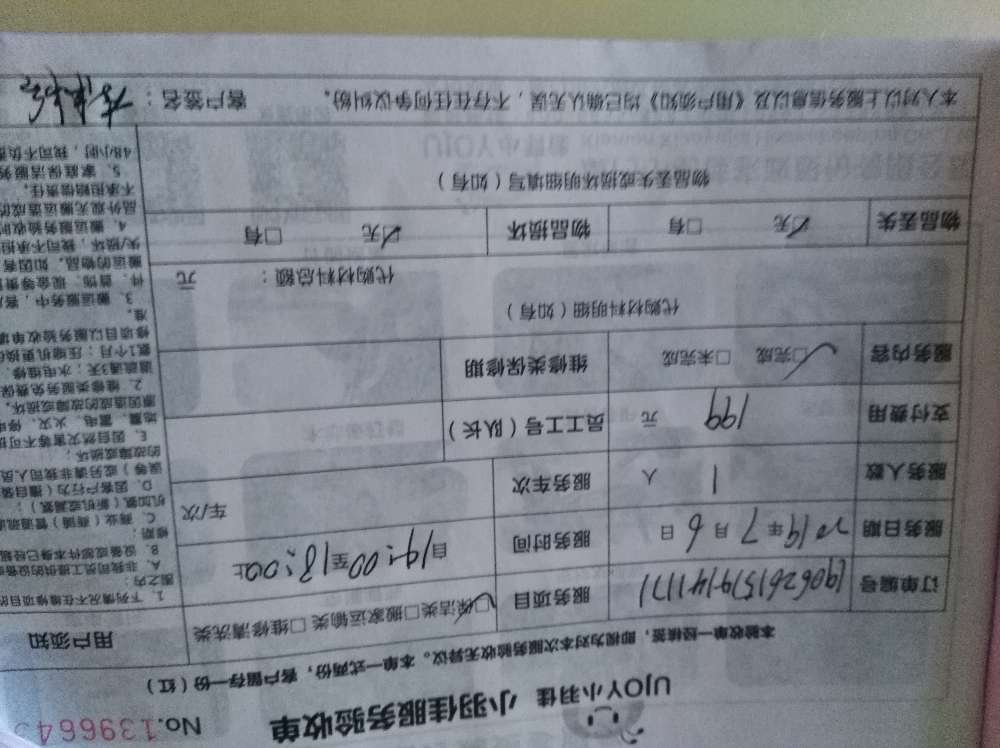 UJOY小羽佳 小羽佳服务验收单 No.139664
本验收单一经核签，即视为对本次服务验收无异议。本单一式两份，客户留存一份（红）
订单编号 服务项目 保洁类 □搬家运输类 □维修清洗类 用户须知
服务日期 2019年7月6日 服务时间 自14:00至18:00止
服务人数 1 人 服务车次 车/次
支付费用 199 元 员工工号（队长）
服务内容 ☑完成 □未完成 维修类保修期
代购材料明细（如有）
代购材料总额： 元
物品丢失 ☑无 □有 物品损坏 ☑无 □有
物品丢失或损坏明细填写（如有）
本人对以上服务信息以及《用户须知》均已确认无误，不存在任何争议纠纷。 客户签名：
1. 下列情况不在维修项目的
围之内：
A. 非我司员工提供的设备
B. 设备或部件本身已超
修期；
C. 商业（商铺）管道疏
机加氟（新机或漏氟）；
D. 因客户行为（擅自
误等）或另请非我司人员
的故障或损坏；
E. 因自然灾害等不可
地震、雷电、火灾、停电
原因造成的故障或损坏。
2. 维修类服务免费保
道疏通3天；水电维修、
氟1个月；压缩机更换
修项目以服务验收单填
准。
3. 搬运服务中，客户
件、首饰、现金等贵
搬运的物品，如因客
失/损坏，我司不承担
4. 搬运服务验收时
品外观无搬运造成的
不承担赔偿责任。
5. 家庭保洁服务
48小时，我司不负